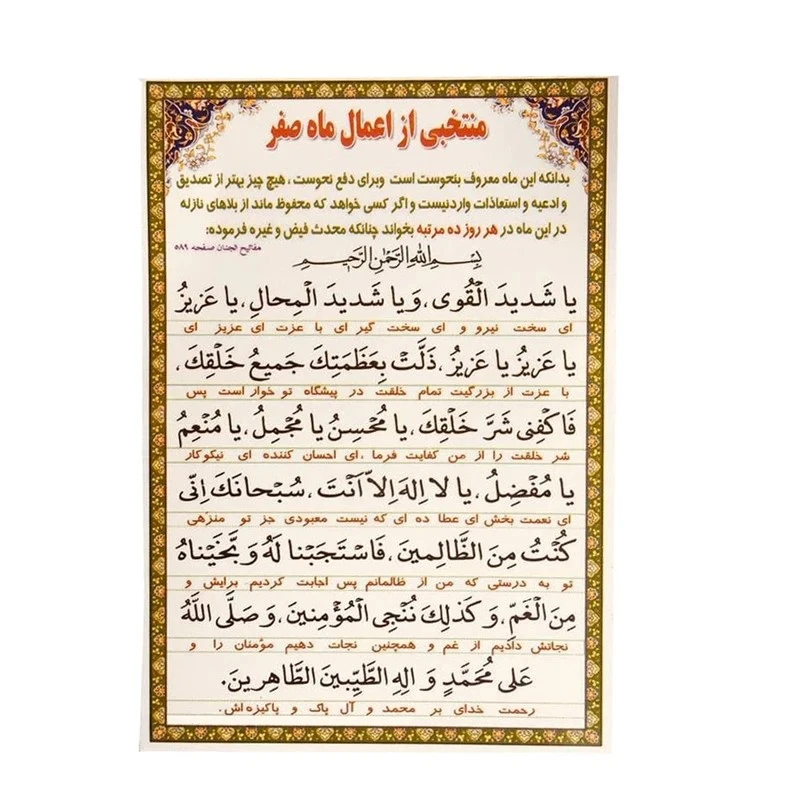 منتخبی از اعمال ماه صفر
بدانکه این ماه معروف بنحوست است وبرای دفع نحوست ، هیچ چیز بهتر از تصدیق
و ادعیه و استعاذات واردنیست و اگر کسی خواهد که محفوظ ماند از بلاهای نازله
در این ماه در هر روز ده مرتبه بخواند چنانکه محدث فیض و غیره فرموده:
مفاتیح الجنان صفحه ۵۸۹
بِسْمِ اللهِ الرَّحْمٰنِ الرَّحیمِ
یا شَدیدَ الْقُوی، وَ یا شَدیدَ الْمِحالِ، یا عَزیزُ
ای سخت نیرو و ای سخت گیر ای با عزت ای عزیز ای
یا عَزیزُ یا عَزیزُ ،ذَلَّتْ بِعَظَمَتِكَ جَمیعُ خَلْقِكَ،
با عزت از بزرگیت تمام خلقت در پیشگاه تو خوار است پس
فَاكْفِنی شَرَّ خَلْقِكَ، یا مُحْسِنُ یا مُجْمِلُ، یا مُنْعِمُ
شر خلقت را از من کفایت فرما،ای احسان کننده ای نیکوکار
یا مُفْضِلُ، یا لا اِلهَ اِلاّ اَنْتَ ، سُبْحانَكَ اِنّی
ای نعمت بخش ای عطا ده ای که نیست معبودی جز تو منزهی
كُنْتُ مِنَ الظَّالِمینَ، فَاسْتَجَبْنا لَهُ وَ نَجَّیْناهُ
تو به درستی که من از ظالمانم پس اجابت کردیم برایش و
مِنَ الْغَمِّ، وَ كَذلِكَ نُنْجِی الْمُؤْمِنینَ، وَ صَلَّی اللّهُ
نجاتش دادیم از غم و همچنین نجات دهیم مؤمنان را و
عَلی مُحَمَّدٍ وَ الِهِ الطَّیِّبینَ الطَّاهِرینَ.
رحمت خدای بر محمد و آل پاک و پاکیزه‌اش.